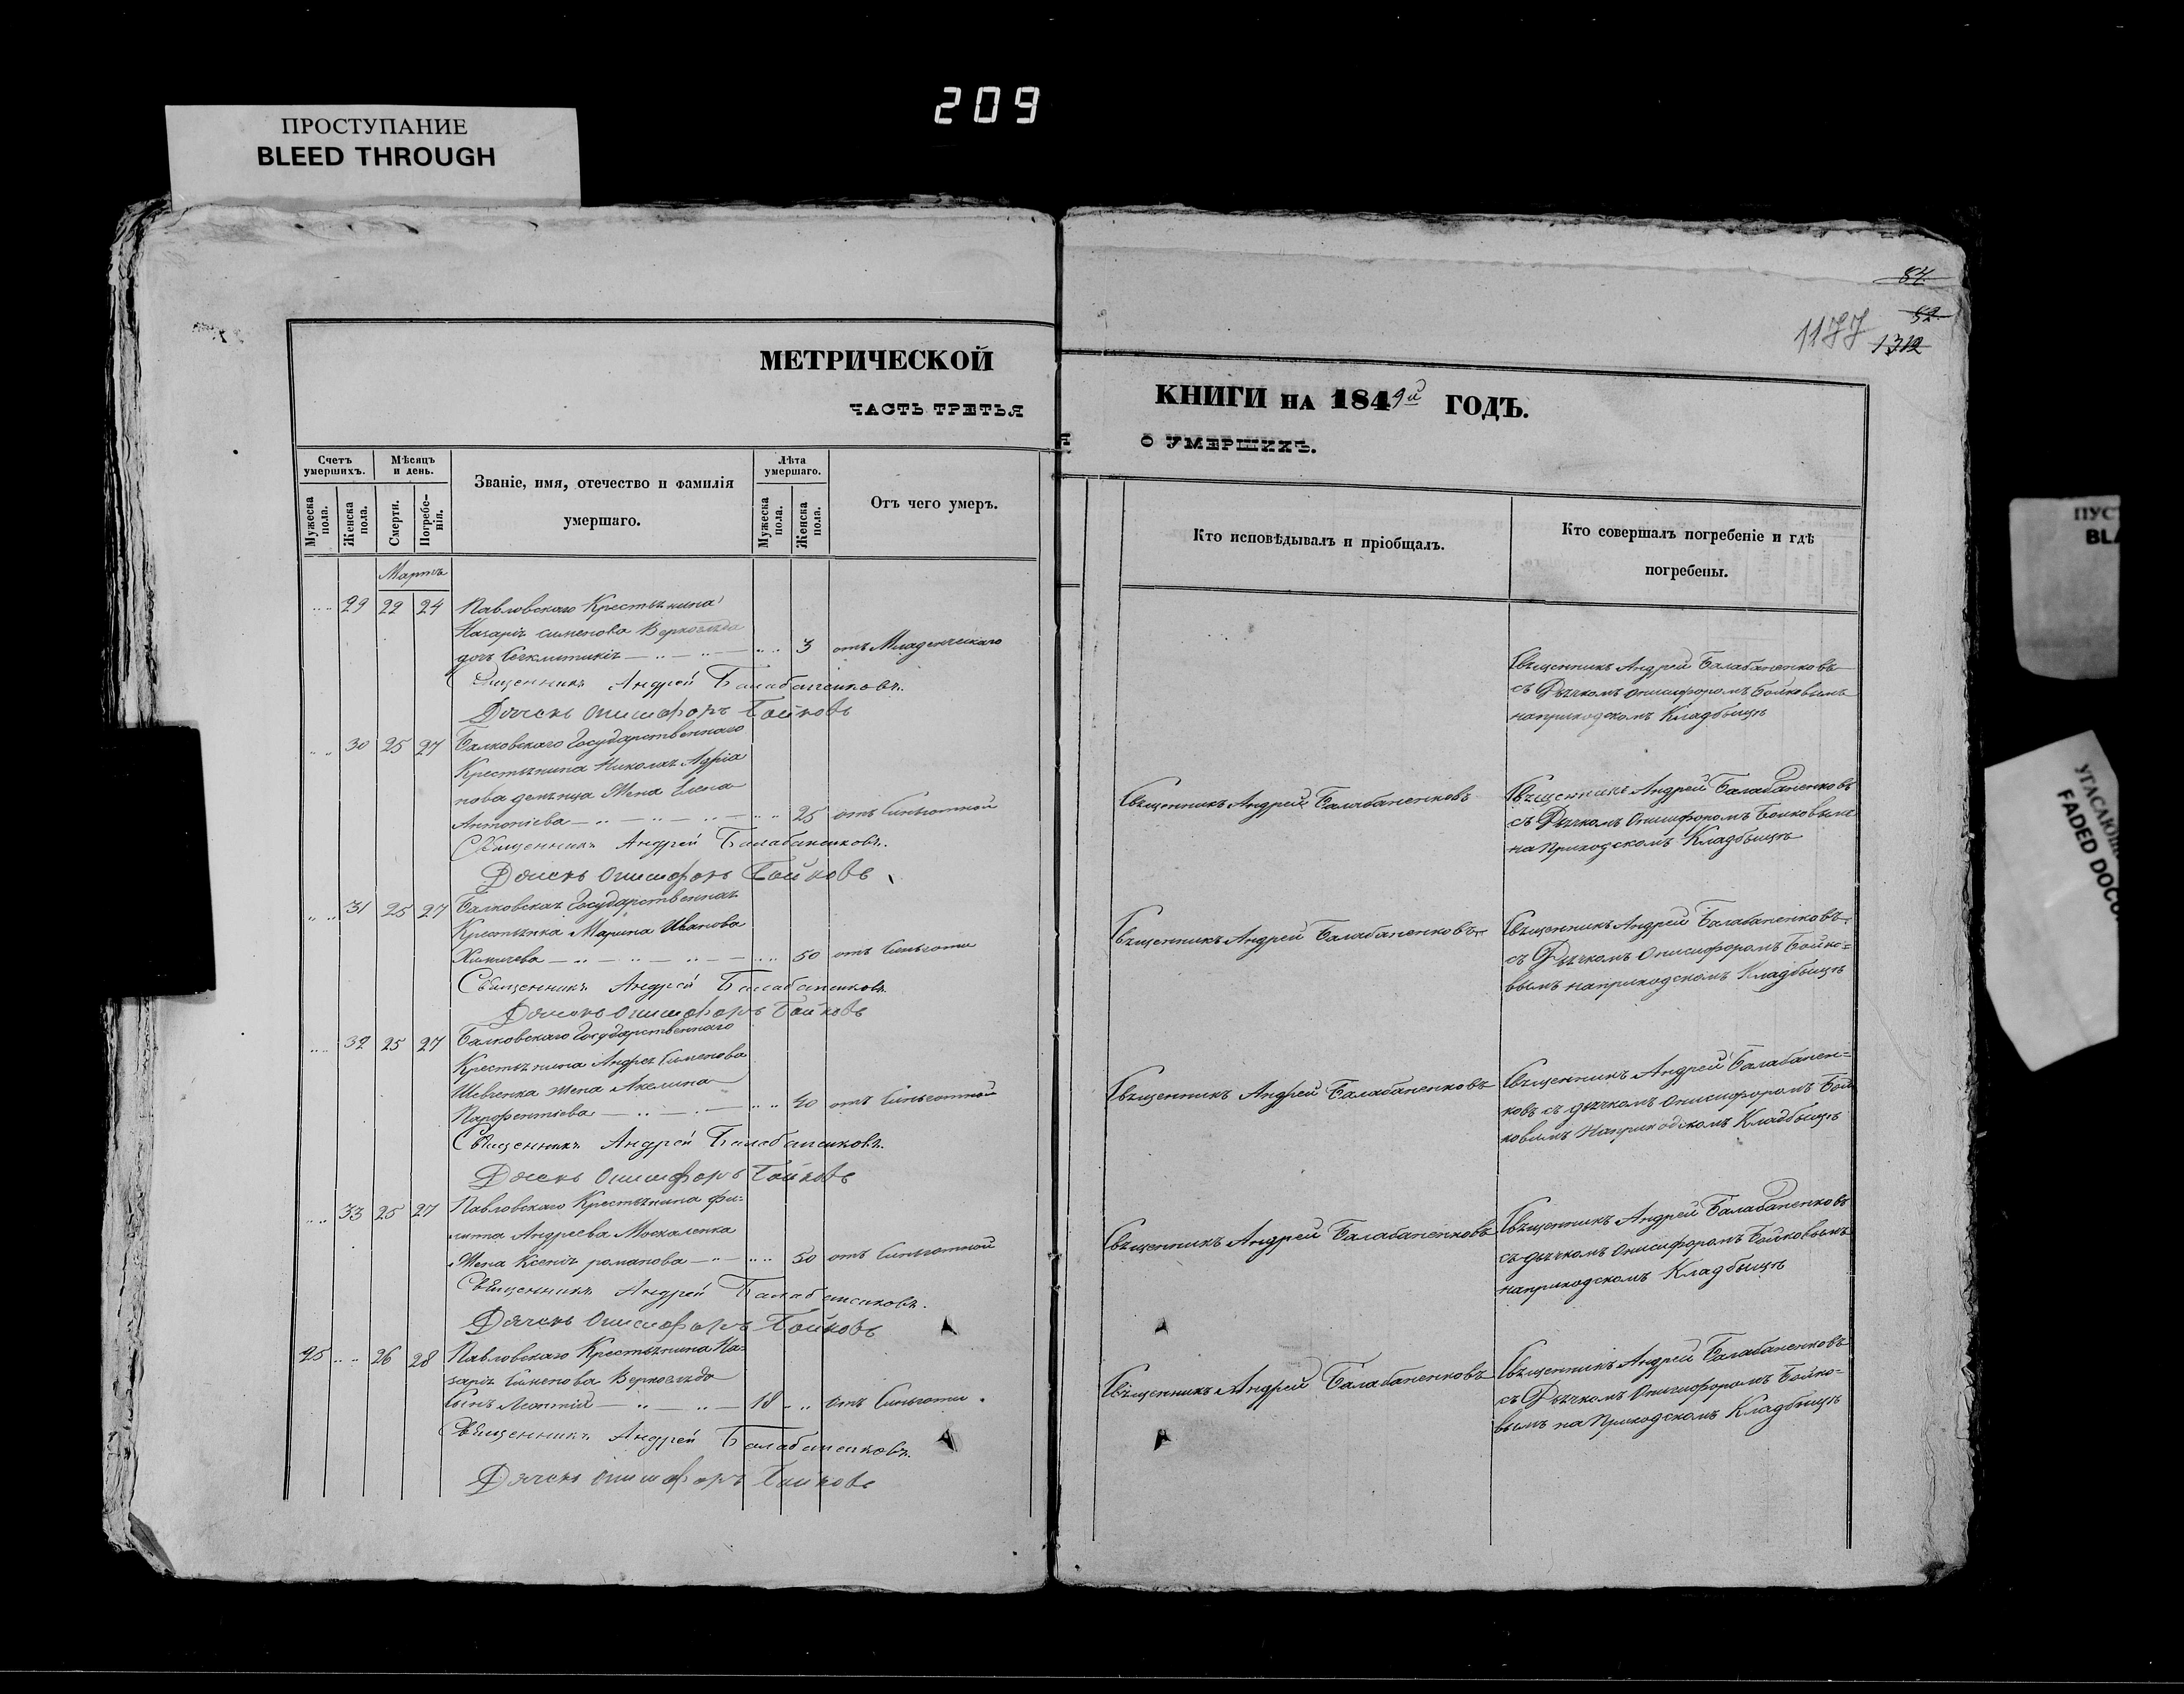 209
ПРОСТУПАНИЕ
BLEED THROUGH
84
52
1177 1312
МЕТРИЧЕСКОЙ
ЧАСТЬ ТРЕТЬЯ
КНИГИ НА 1849й ГОДЪ.
О УМЕРШИХЪ.
Счетъ умершихъ.
Мужеска пола.
Женска пола.
Мѣсяцъ и день.
Смерти.
Погребенія.
Званіе, имя, отечество и фамилія
умершаго.
Лѣта умершаго.
Мужеска пола.
Женска пола.
Отъ чего умеръ.
Кто исповѣдывалъ и пріобщалъ.
Кто совершалъ погребеніе и гдѣ
погребены.
Мартъ
29 22 24 Павловскаго Крестьянина
Назарія Сименова
дочь 3 отъ Младенческаго
Священникъ Андрей Балабаненковъ.
Дячекъ Онисифоръ Бойковъ
Священникъ Андрей Балабаненковъ
съ Дячкомъ Онисифоромъ Бойковымъ
наприходскомъ Кладбищѣ
30 25 27 Балковскаго Государственнаго
Крестьянина Николая Адріа
нова Жена Елена
Антоніева 25
Священникъ Андрей Балабаненковъ.
Дячекъ Онисифоръ Бойковъ
Священникъ Андрей Балабаненковъ
Священникъ Андрей Балабаненковъ
съ Дячкомъ Онисифоромъ Бойковымъ
на Приходскомъ Кладбищѣ
31 25 27 Балковская Государственная
Крестьянка Марина Иванова
50
Священникъ Андрей Балабаненковъ
Дячекъ Онисифоръ Бойковъ
Священникъ Андрей Балабаненковъ
Священникъ Андрей Балабаненковъ
съ Дячкомъ Онисифоромъ Бойко=
вымъ наприходскомъ Кладбищѣ
32 25 27 Балковскаго Государственнаго
Крестьянина Андрея Сименова
Шевченка жена Акелина
Парфентіева 40
Священникъ Андрей Балабаненковъ.
Дячекъ Онисифоръ Бойковъ
Священникъ Андрей Балабаненковъ
Священникъ Андрей Балабанен=
ковъ съ дячкомъ Онисифоромъ Бой
ковымъ Наприходскомъ Кладбищѣ
33 25 27 Павловскаго Крестьянина Фи=
липпа Андреева Москаленка
Жена Ксенія романова 50
Священникъ Андрей Балабаненковъ.
Дячекъ Онисифоръ Бойковъ
Священникъ Андрей Балабаненковъ
Священникъ Андрей Балабаненковъ
съ дячкомъ Онисифоромъ Бойковымъ
наприходскомъ Кладбищѣ
25 26 28 Павловскаго Крестьянина На=
зарія Сименова
Сынъ Леонтій 18
Священникъ Андрей Балабаненковъ.
Дячекъ Онисифоръ Бойковъ
Священникъ Андрей Балабаненковъ
Священникъ Андрей Балабаненковъ
съ Дячкомъ Онисифоромъ Бойко=
вымъ на Приходскомъ Кладбищѣ
ПУС
BLA
FADED DOCU